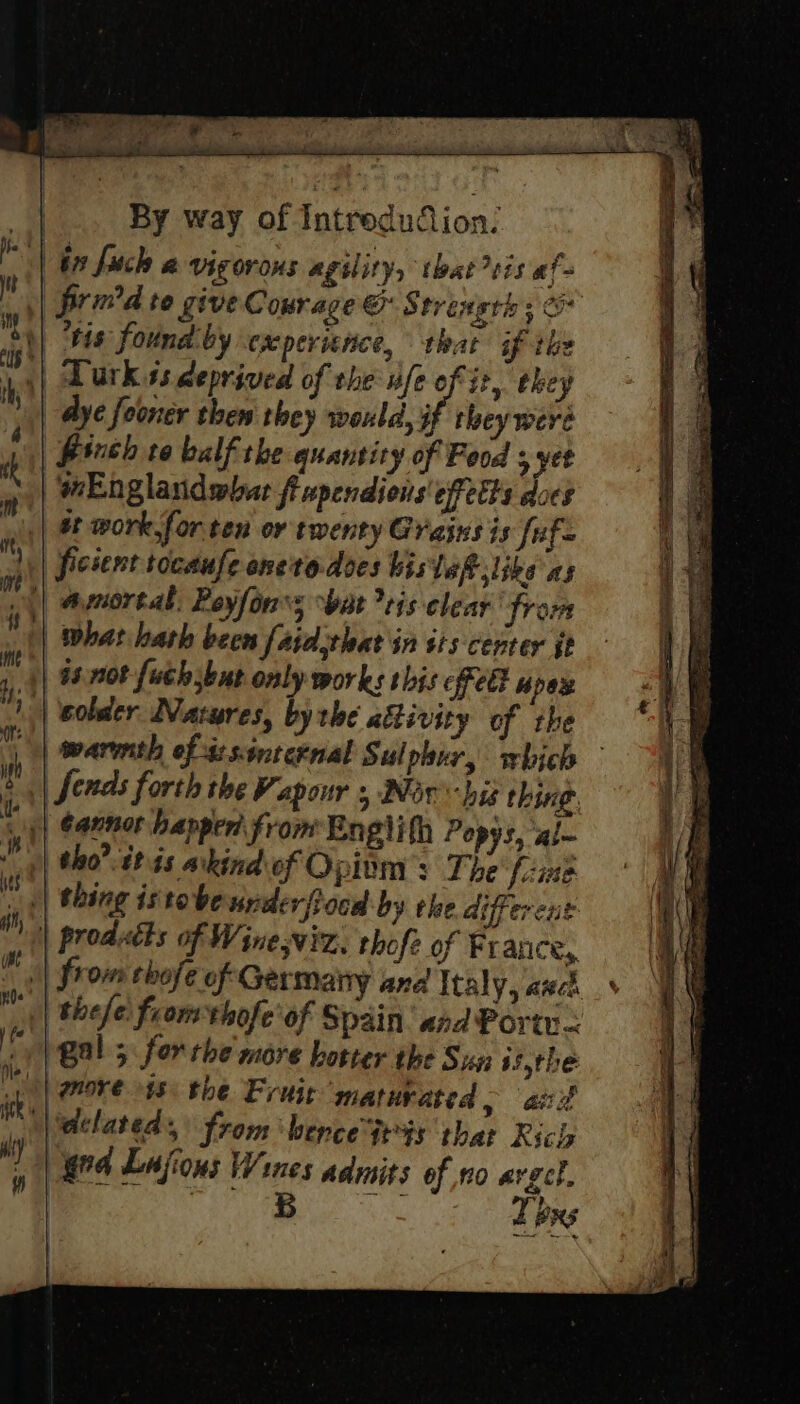 By way of Introduction.
in ſuch a vigorous agility, that 'tis af-
firm'd to give Courage & Strength; &
'tis found by experience, that if the
Turk is deprived of the uſe of it, they
dye ſooner then they would, if they were
ſtinch to half the quantity of Food; yet
in England what ſtupendious effects does
it work, for ten or twenty Grains is ſuf-
ficient to cauſe one to does his laſt, like as
a mortal Poyſon; but 'tis clear from
what hath been ſaid, that in its center it
is not ſuch, but only works this effect upon
colder Natures, by the activity of the
warmth of its internal Sulphur, which
ſends forth the Vapour; Nor this thing
cannot happen from Engliſh Popys, al-
tho' it is a kind of Opium: The ſame
thing is to be underſtood by the different
products of Wine, viz. thoſe of France,
from thoſe of Germany and Italy, and
theſe from thoſe of Spain and Portu-
gal; for the more hotter the Sun is, the
more is the Fruit maturated, and
delated, from hence it is that Rich
and Luſious Wines admits of no argel.
B Thus